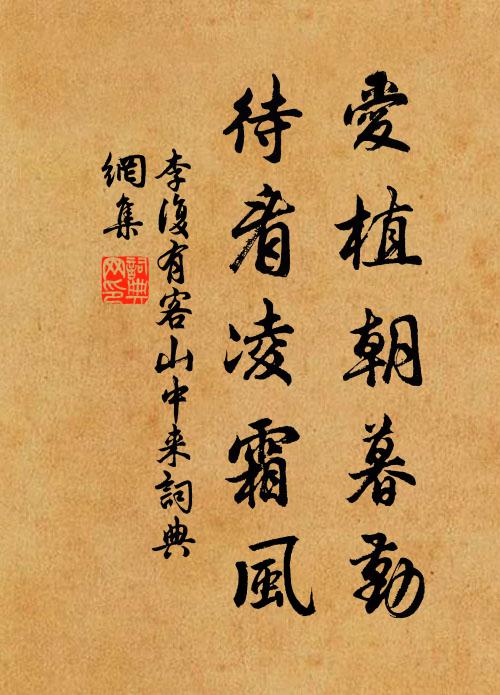 愛植朝暮勤
待看凌霜風
李復有客山中来詞典
網集
詞典
网印